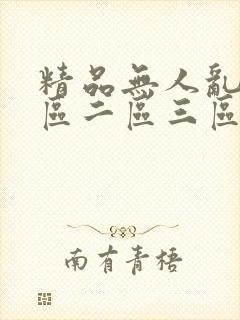 精品無人亂
區二區三區
南有青梧